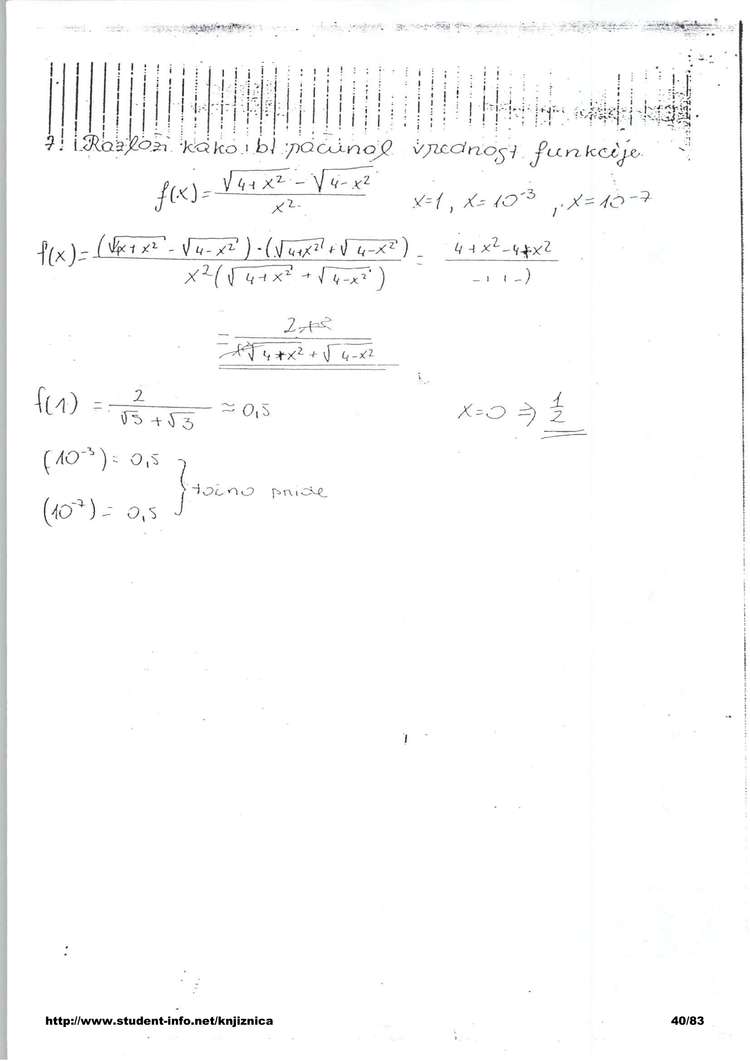 7. Razloži kako bi računal vrednost funkcije
f(x) = \frac{\sqrt{4+x^2} - \sqrt{4-x^2}}{x^2} x=1, x=10^{-3}, x=10^{-7}
f(x) = \frac{(\sqrt{4x+x^2} - \sqrt{4-x^2}) \cdot (\sqrt{4+x^2} + \sqrt{4-x^2})}{x^2(\sqrt{4+x^2} + \sqrt{4-x^2})} = \frac{4+x^2-4+x^2}{-11-)}
= \frac{2x^2}{x^2\sqrt{4+x^2} + \sqrt{4-x^2}}
f(1) = \frac{2}{\sqrt{5}+\sqrt{3}} ≈ 0,5 x=0 ⇒ \frac{1}{2}
(10^{-3}) = 0,5
točno pride
(10^{-7}) = 0,5
http://www.student-info.net/knjiznica 40/83